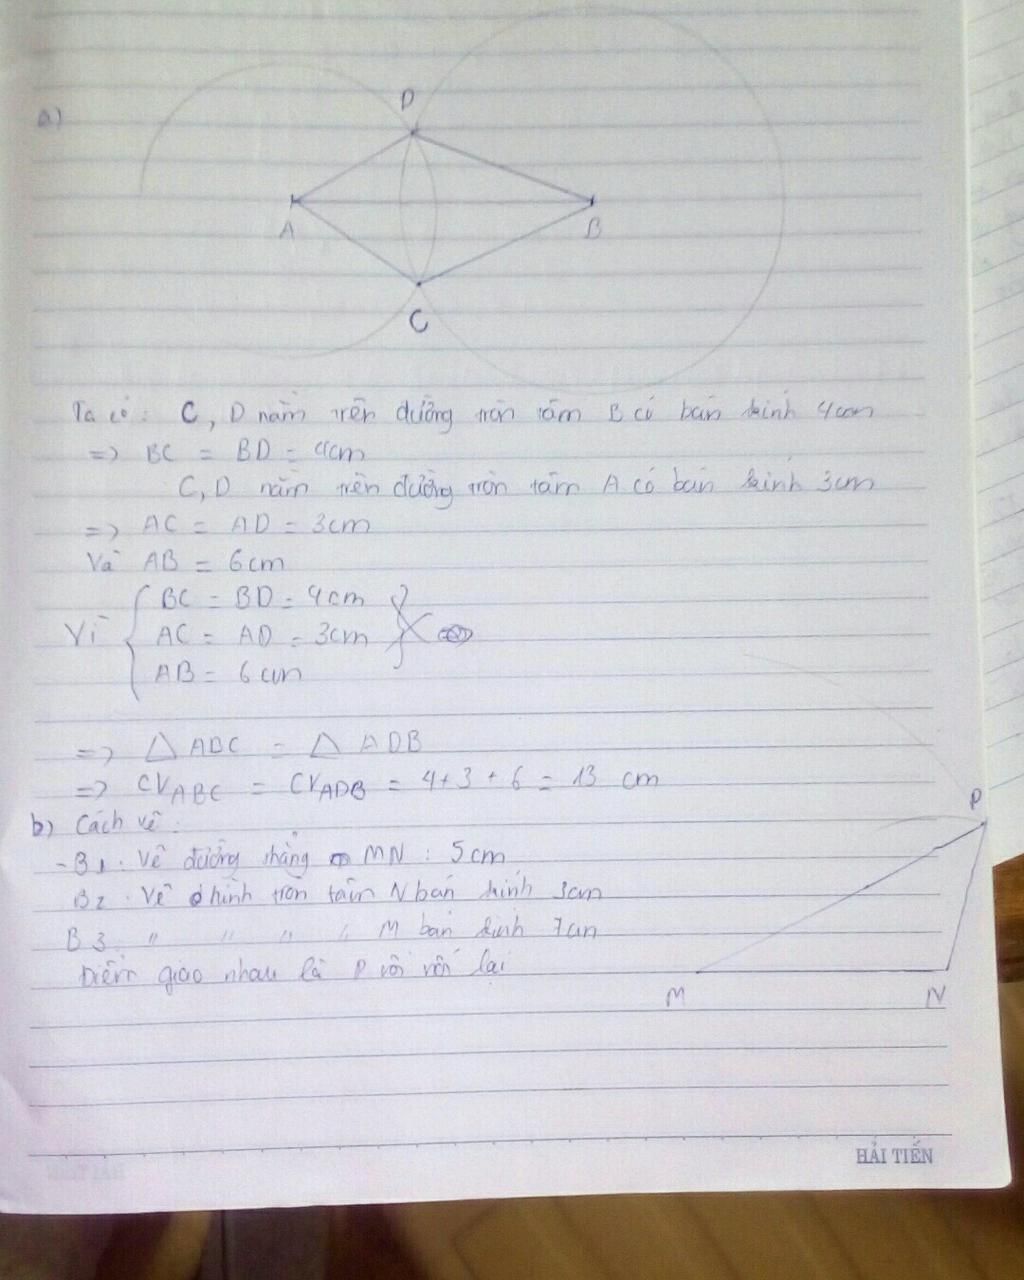 a)
D
A
B
C
Ta có: C, D nằm trên đường tròn tâm B có bán kính 4cm
=> BC = BD = 4cm
C, D nằm trên đường tròn tâm A có bán kính 3cm
=> AC = AD = 3cm
Và AB = 6cm
BC = BD = 4cm
Vì AC = AD = 3cm
AB = 6cm
=> △ ABC = △ ADB
=> CV ABC = CV ADB = 4+3+6 = 13 cm
P
b) Cách vẽ:
- B1: Vẽ đường thẳng MN: 5cm
B2: Vẽ hình tròn tâm N bán kính 3cm
B3: " " " " M bán kính 7cm
Điểm giao nhau là P rồi nối lại
M
N
HẢI TIẾN